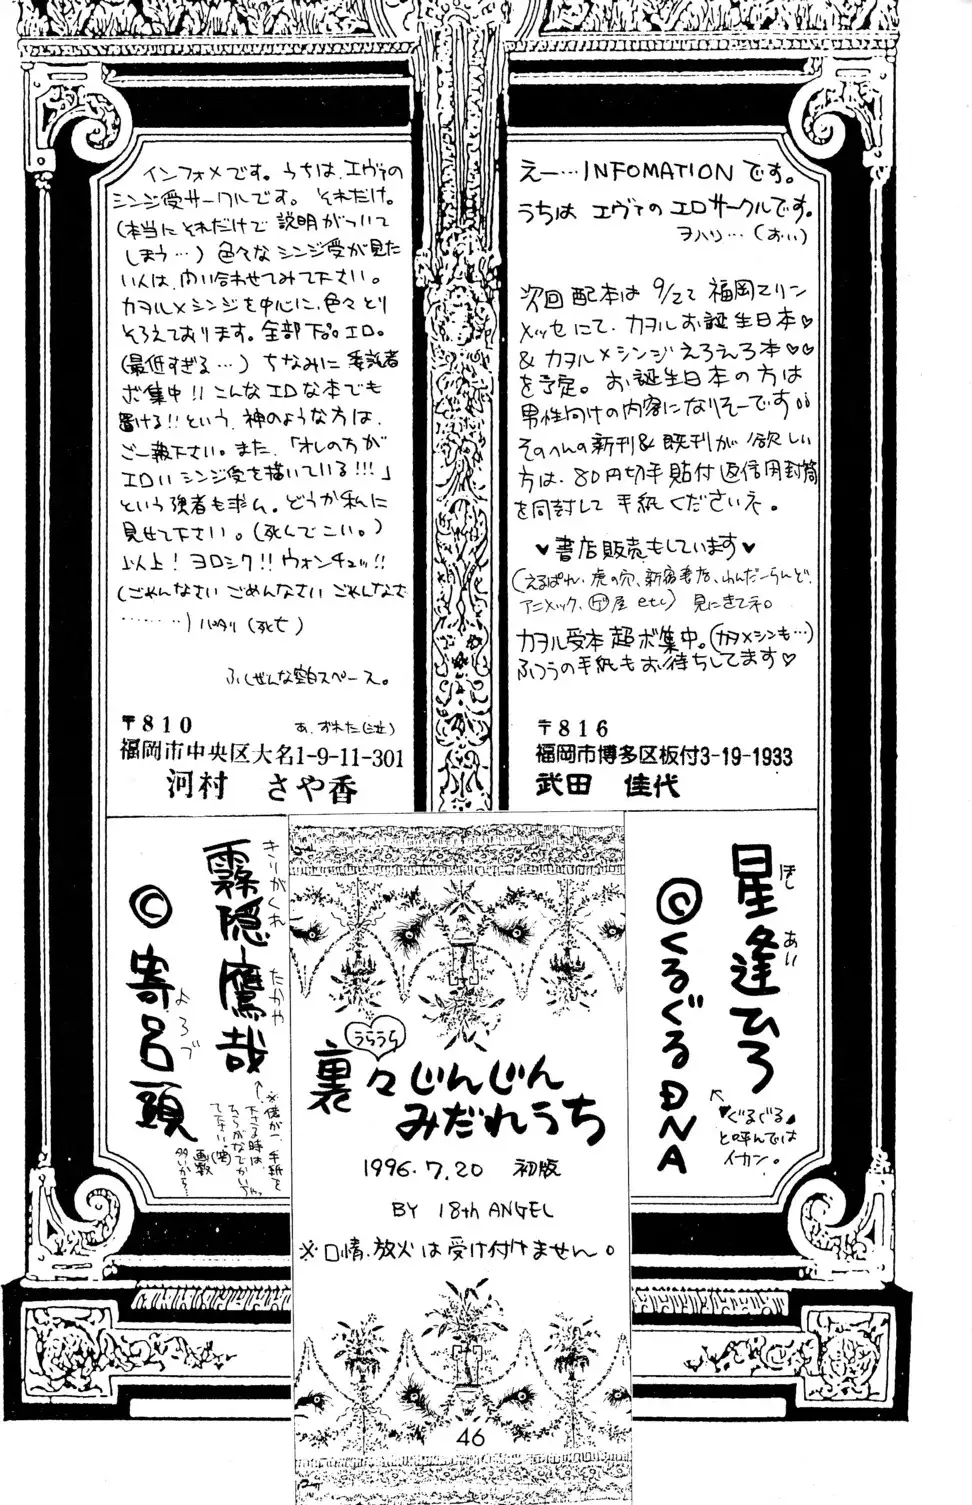 えー…INFOMATIONです。
うちは エヴァのエロサークルです。
ヲハリ…(おい)
次回配本は9/22福岡マリン
メッセにて、カヲルお誕生日本♡
&カヲル×シンジえろえろ本♡♡
を予定。お誕生日本の方は
男性向けの内容になりそーです
そのへんの新刊&既刊が欲しい
方は、80円切手貼付返信用封筒
を同封して手紙くださいネ。
♥書店販売もしています♥
(えるぱれ、虎の穴、新宿書店、わんだーらんど、
アニメック、ゲ屋 etc) 見にきてネ。
カヲル受本超ボ集中。(カヲ×シンも…)
ふつうの手紙もお待ちしてます♡
〒816
福岡市博多区板付3-19-1933
武田 佳代
インフォメです。うちは、エヴァの
シンジ受サークルです。それだけ。
(本当にそれだけで説明がついて
しまう…)色々なシンジ受が見た
い人は、問い合わせてみて下さい。
カヲル×シンジを中心に、色々とり
そろえております。全部下品。エロ。
(最低すぎる…)ちなみに委託者
ボ集中!!こんなエロな本でも
置ける!!という、神のような方は、
ご一報下さい。また、「オレの方が
エロいシンジ受を描いている!!!」
という強者も求ム。どうか私に
見せて下さい。(死んでこい。)
以上!ヨロシク!!ウォンチュッ!!
(ごめんなさい ごめんなさい ごめんなさ
………)バタリ(死亡)
ふしぜんな空白スペース。
あ、ずれた(泣)
〒810
福岡市中央区大名1-9-11-301
河村 さや香
星逢ひろ
ほし あい
©くるぐるDNA
♥ぐるぐる♥
と呼んでは
イカン。
霧隠鷹哉
きりがくれ たかや
※僕が一、手紙を
下さる時は、
ひらがなでかいて
下さい。(笑)
画数
多いから…
©寄呂頭
よろづ
裏々じんじん
うらうら
みだれうち
1996.7.20 初版
BY 18th ANGEL
※口情、放火は受け付けません。
46